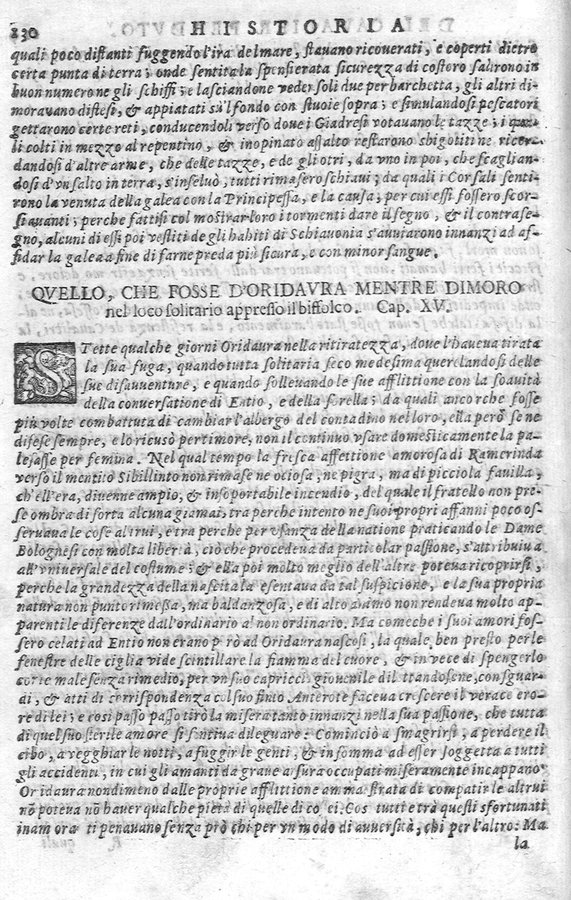 230 HISTORIA
quali poco distanti fuggendo l'ira del mare, stavano ricoverati, e coperti dietro
certa punta di terra; onde sentita la spensierata sicurezza di costoro salirono in
buon numero ne gli schiffi; e lasciandone veder soli due per barchetta, gli altri di-
moravano distesi, & appiatati sù'l fondo con stuoie sopra; e simulandosi pescatori
gettarono certe reti, conducendoli verso dove i Giadresi votavano le tazze; i qua-
li colti in mezzo al repentino, & inopinato assalto restarono sbigotiti ne ricor-
dandosi d'altre arme, che delle tazze, e de gli otri, da vno in poi, che scaglian-
dosi d'vn salto in terra, s'inseluò, tutti rimasero schiaui; da quali i Corsali senti-
rono la venuta della galea con la Principessa, e la causa; per cui essi fossero scor-
si auanti; perche fattisi col mostrar loro i tormenti dare il segno, & il contrase-
gno, alcuni di essi poi vestiti de gli habiti di Schiauonia s'auuiarono innanzi ad af-
fidar la galea a fine di farne preda più sicura, e con minor sangue.
QVELLO, CHE FOSSE D'ORIDAVRA MENTRE DIMORO
nel loco solitario appresso il biffolco. Cap. XV.
STette qualche giorni Oridaura nella ritiratezza, doue l'haueua tirata
la sua fuga, quando tutta solitaria seco medesima querelandosi delle
sue disauuenture, e quando solleuando le sue afflittione con la soauità
della conuersatione di Entio, e della sorella; da quali ancorche fosse
più volte combattuta di cambiar l'albergo del contadino nel loro, ella però se ne
difese sempre, e lo ricusò per timore, non il continuo vsare domesticamente la pa-
lesasse per femina. Nel qual tempo la fresca affettione amorosa di Ramerinda
verso il mentito Sibillinto non rimase ne ociosa, ne pigra, ma di picciola fauilla,
ch'ell'era, diuenne ampio, & insoportabile incendio, del quale il fratello non pre-
se ombra di sorta alcuna giamai, tra perche intento ne suoi propri affanni poco os-
seruaua le cose altrui, e tra perche per vsanza della natione praticando le Dame
Bolognesi con molta libertà, ciò che procedeua da particolar passione, s'attribuiua
all'vniuersale del costume; & ella poi molto meglio dell'altre poteua ricoprirsi,
perche la grandezza della nascita la esentaua da tal suspicione, e la sua propria
natura non punto rimessa, ma baldanzosa, e di alto animo non rendeua molto ap-
parenti le diferenze dall'ordinario a' non ordinario. Ma comeche i suoi amori fos-
sero celati ad Entio non erano però ad Oridaura nascosi, la quale ben presto per le
fenestre delle ciglia vide scintillare la fiamma del cuore, & in vece di spengerlo
come male senza rimedio, per vn suo capriccio giouenile dilettandosene, con sguar-
di, & atti di corrispondenza col suo finto Anterote faceua crescere il verace ero-
re di lei; e così passo passo tirò la misera tanto innanzi nella sua passione, che tutta
di quel suo sterile amore si sentiua dileguare: Cominciò a smagrirsi, a perdere il
cibo, a vegghiar le notti, a fuggir le genti, & in somma ad esser soggetta a tutti
gli accidenti, in cui gli amanti da graue asura occupati miseramente incappano.
Oridaura nondimeno dalle proprie afflittione ammaestrata di compatir le altrui
nō poteua nō hauer qualche pietà di quelle di costei. Così tutti e trà questi sfortunati
inamorati penauano senza prò chi per vn modo di auuersità, chi per l'altro: Ma
la